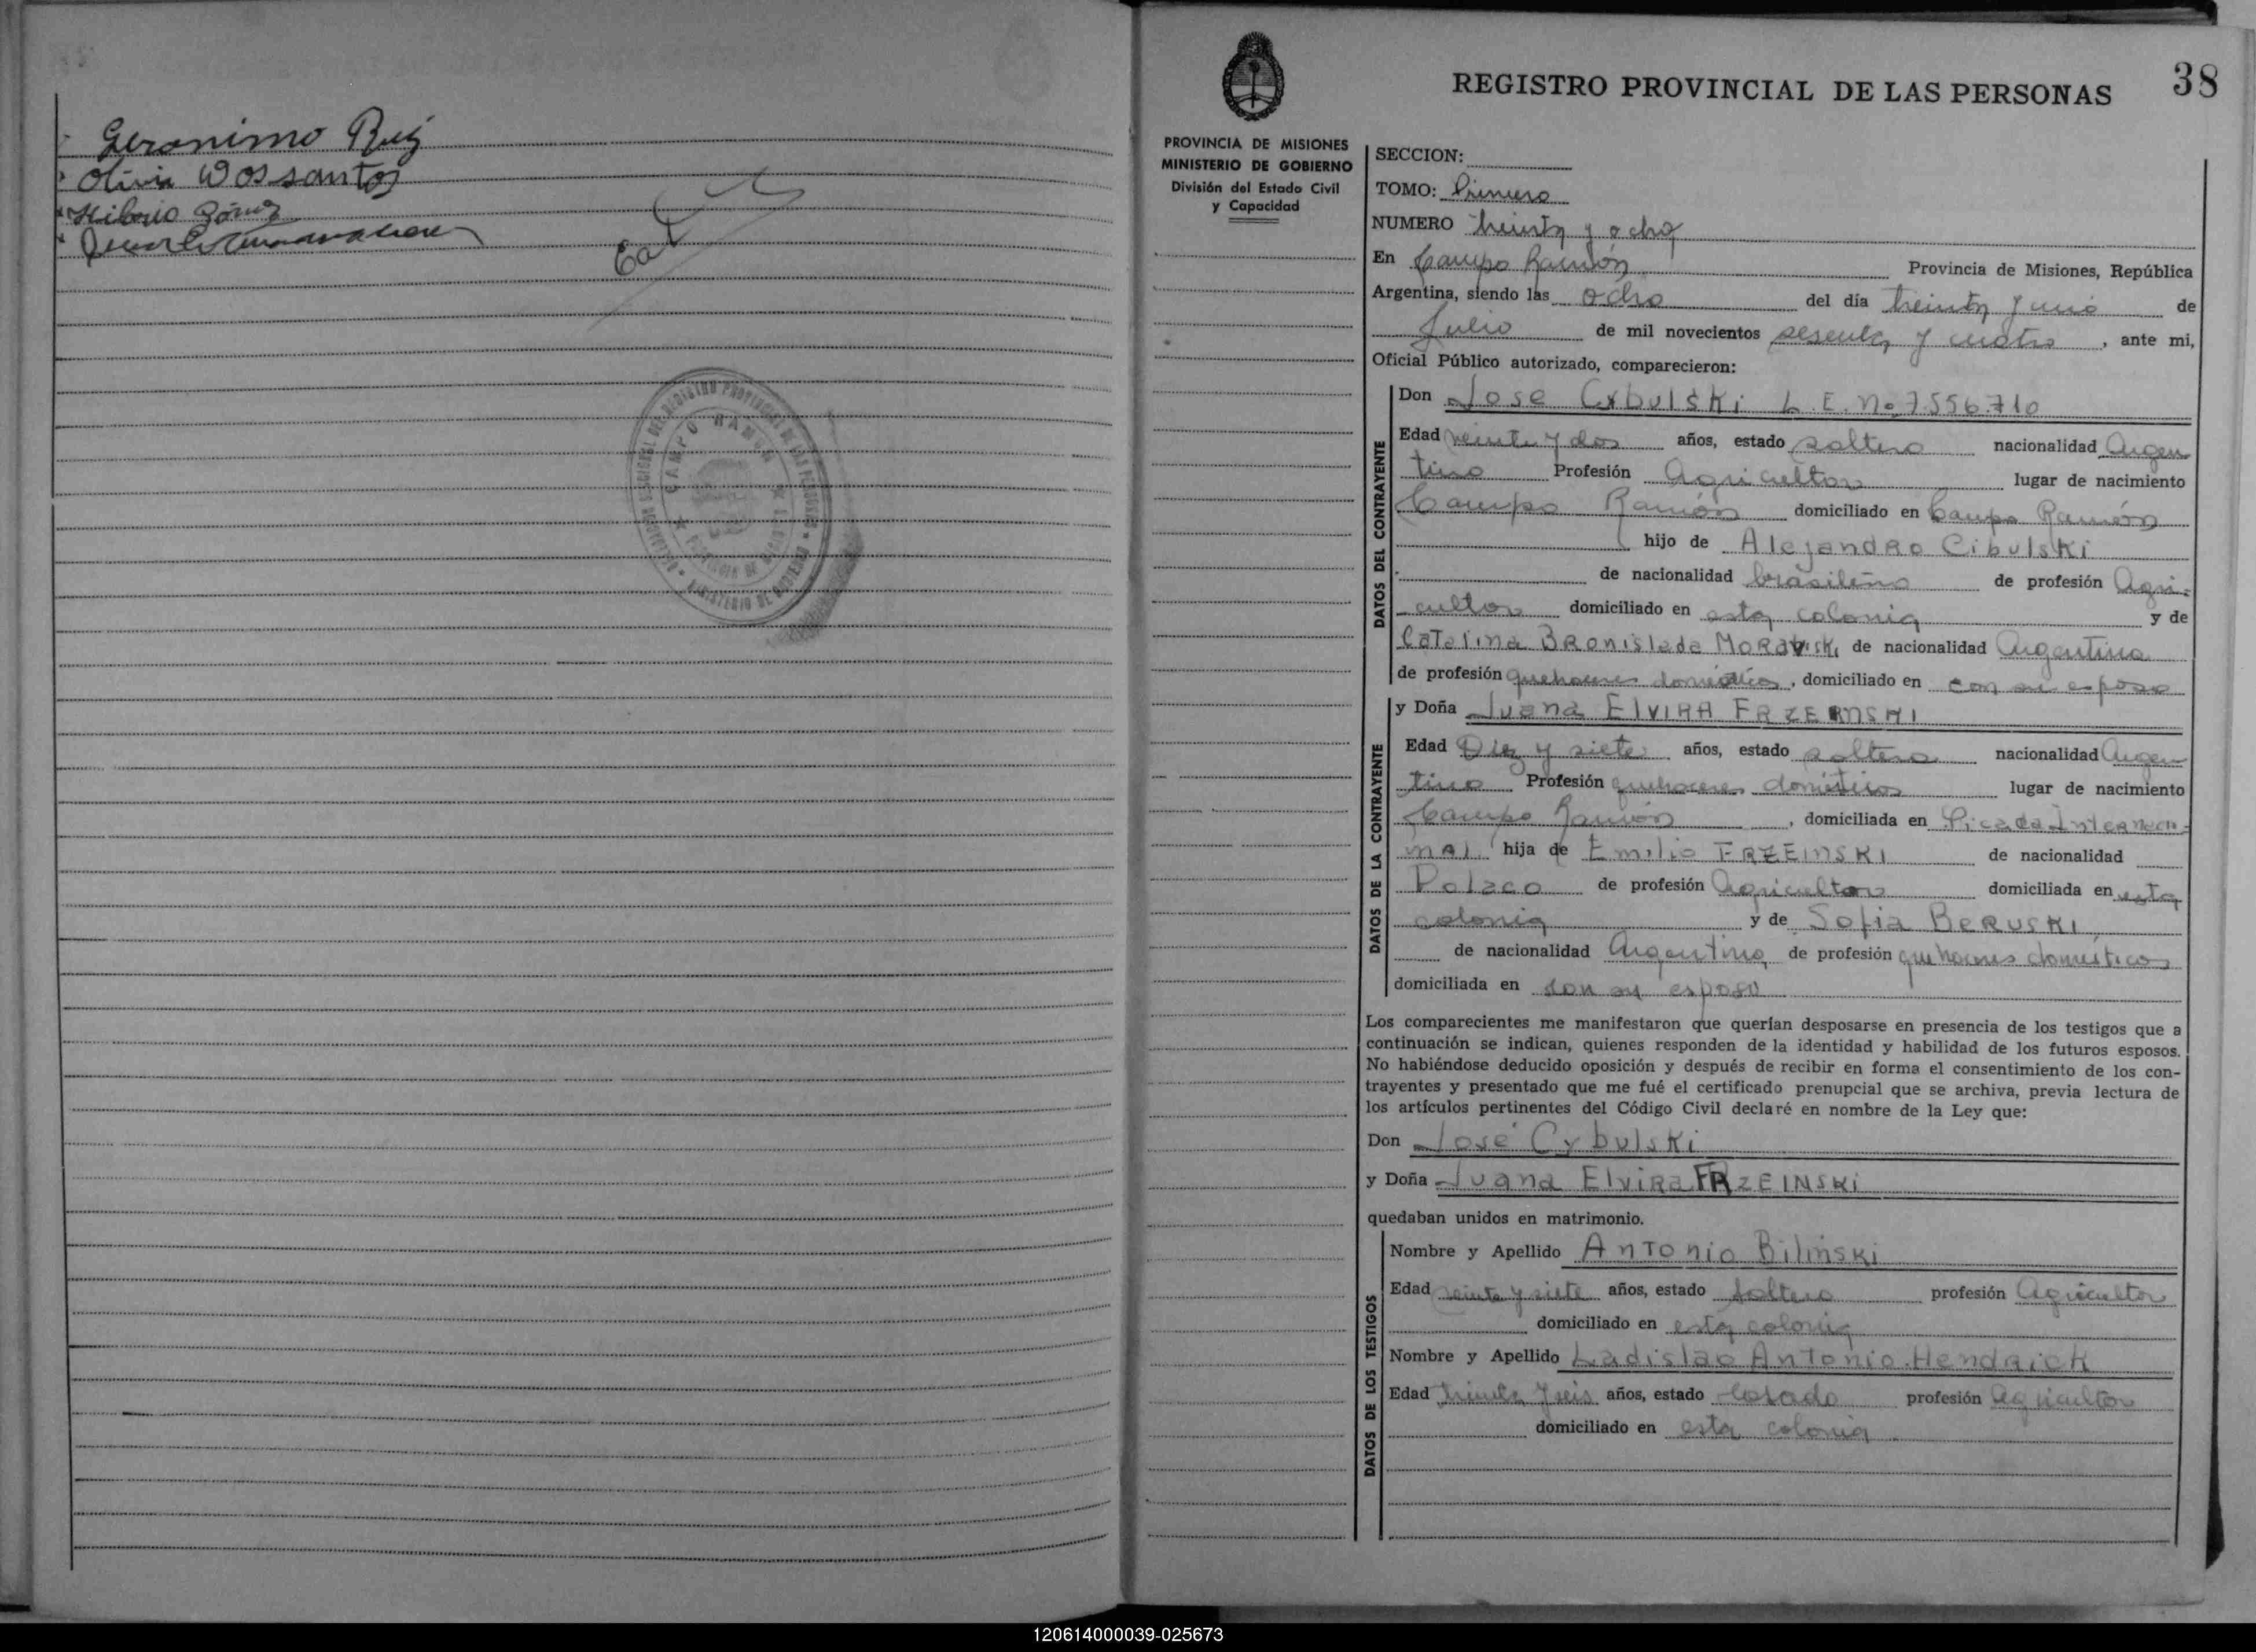 Geronimo Ruiz
Olivia Dos santos
Hilario Gómez
CAMPO RAMON
MINISTERIO DE GOBIERNO
38
REGISTRO PROVINCIAL DE LAS PERSONAS
PROVINCIA DE MISIONES
MINISTERIO DE GOBIERNO
División del Estado Civil
y Capacidad
SECCION:
TOMO: Primero
NUMERO treinta y ocho
En Campo Ramón Provincia de Misiones, República
Argentina, siendo las ocho del día treinta y uno de
Julio de mil novecientos sesenta y cuatro, ante mi,
Oficial Público autorizado, comparecieron:
DATOS DEL CONTRAYENTE
Don Jose Cybulski L.E. No 7.556.710
Edad veinte y dos años, estado soltero nacionalidad Argen
tino Profesión Agricultor lugar de nacimiento
Campo Ramón domiciliado en Campo Ramón
hijo de Alejandro Cibulski
de nacionalidad brasileño de profesión Agri-
cultor domiciliado en esta colonia y de
Catalina Bronislada Moraviski de nacionalidad Argentina
de profesión quehaceres domésticos, domiciliado en con su esposo
DATOS DE LA CONTRAYENTE
y Doña Juana Elvira FRZEINSKI
Edad Diez y siete años, estado soltera nacionalidad Argen
tino Profesión quehaceres domésticos lugar de nacimiento
Campo Ramón, domiciliada en Picada Internacio-
nal hija de Emilio FRZEINSKI de nacionalidad
Polaco de profesión Agricultor domiciliada en esta
colonia y de Sofia Beruski
de nacionalidad Argentina de profesión quehaceres domésticos
domiciliada en con su esposo
Los comparecientes me manifestaron que querían desposarse en presencia de los testigos que a
continuación se indican, quienes responden de la identidad y habilidad de los futuros esposos.
No habiéndose deducido oposición y después de recibir en forma el consentimiento de los con-
trayentes y presentado que me fué el certificado prenupcial que se archiva, previa lectura de
los artículos pertinentes del Código Civil declaré en nombre de la Ley que:
Don José Cybulski
y Doña Juana Elvira FRZEINSKI
quedaban unidos en matrimonio.
DATOS DE LOS TESTIGOS
Nombre y Apellido Antonio Bilinski
Edad veinte y siete años, estado soltero profesión Agricultor
domiciliado en esta colonia
Nombre y Apellido Ladislao Antonio Hendrick
Edad treinta y seis años, estado Casado profesión agricultor
domiciliado en esta colonia
120614000039-025673